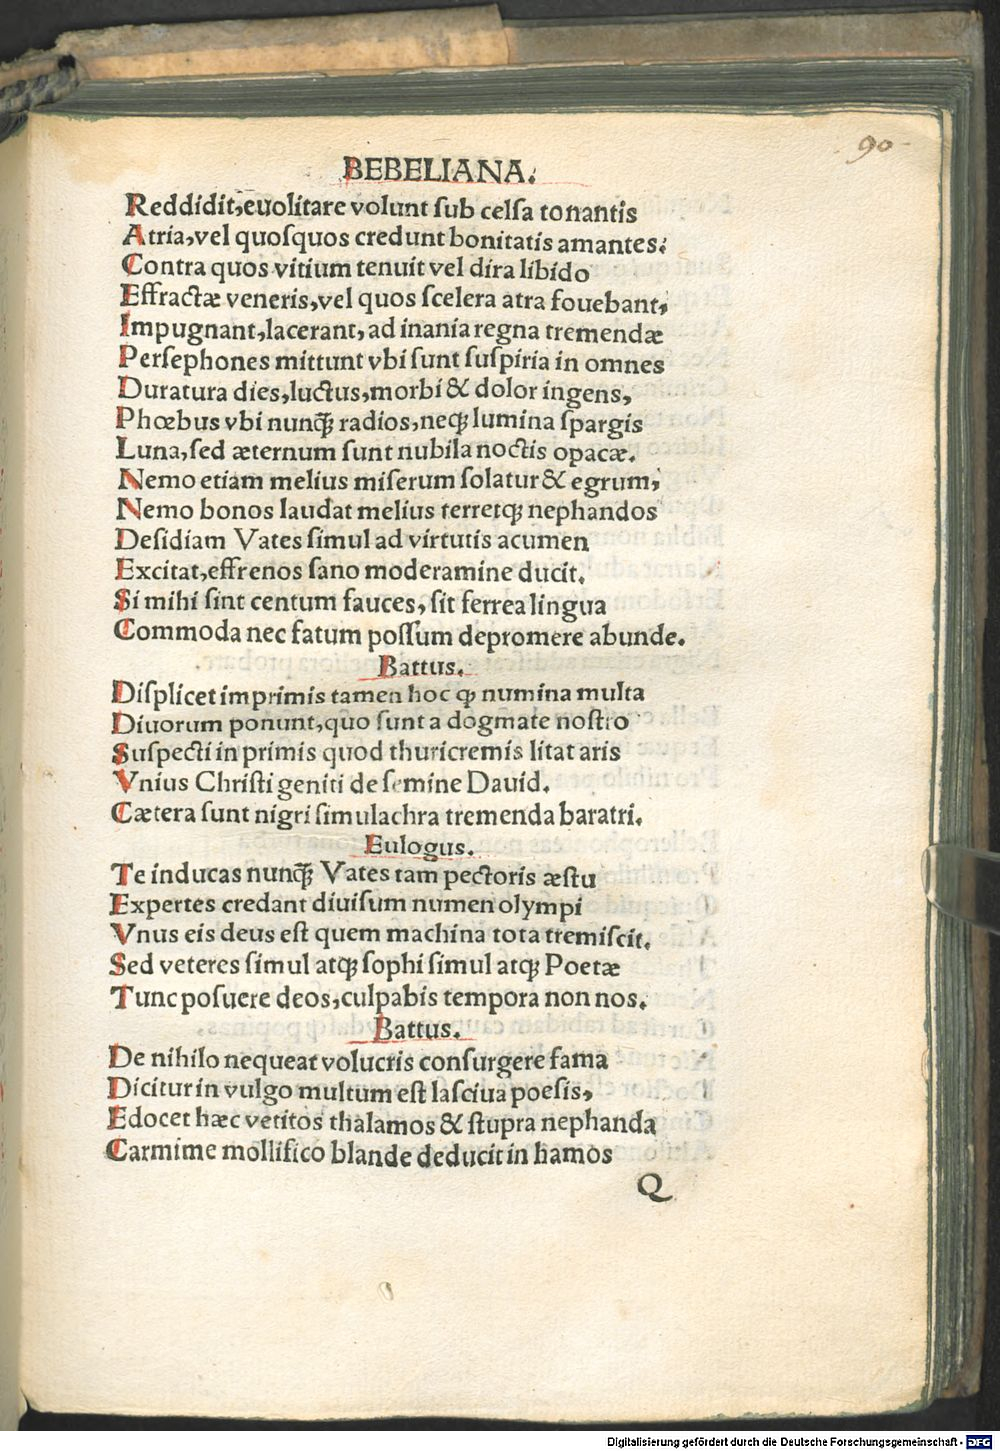 90
BEBELIANA.
Reddidit,euolitare volunt ſub celſa tonantis
Atria,vel quoſquos credunt bonitatis amantes:
Contra quos vitium tenuit vel dira libido
Effractæ veneris,vel quos ſcelera atra fouebant,
Impugnant,lacerant,ad inania regna tremendæ
Perſephones mittunt vbi ſunt ſuſpiria in omnes
Duratura dies,luctus,morbi & dolor ingens,
Phœbus vbi nunq̃ radios,neqꝫ lumina ſpargis
Luna,ſed æternum ſunt nubila noctis opacæ.
Nemo etiam melius miſerum ſolatur & egrum,
Nemo bonos laudat melius terretqꝫ nephandos
Deſidiam Vates ſimul ad virtutis acumen
Excitat,effrenos ſano moderamine ducit.
Si mihi ſint centum fauces,ſit ferrea lingua
Commoda nec fatum poſſum depromere abunde.
Battus.
Diſplicet imprimis tamen hoc ꝙ numina multa
Diuorum ponunt,quo ſunt a dogmate noſtro
Suſpecti in primis quod thuricremis litat aris
Vnius Chriſti geniti de ſemine Dauid.
Cætera ſunt nigri ſimulachra tremenda baratri.
Eulogus.
Te inducas nunq̃ Vates tam pectoris æſtu
Expertes credant diuiſum numen olympi
Vnus eis deus eſt quem machina tota tremiſcit.
Sed veteres ſimul atqꝫ ſophi ſimul atqꝫ Poetæ
Tunc poſuere deos,culpabis tempora non nos.
Battus.
De nihilo nequeat volucris conſurgere fama
Dicitur in vulgo multum eſt laſciua poeſis,
Edocet hæc vetitos thalamos & ſtupra nephanda
Carmime mollifico blande deducit in hamos
Q
Digitalisierung gefördert durch die Deutsche Forschungsgemeinschaft - DFG